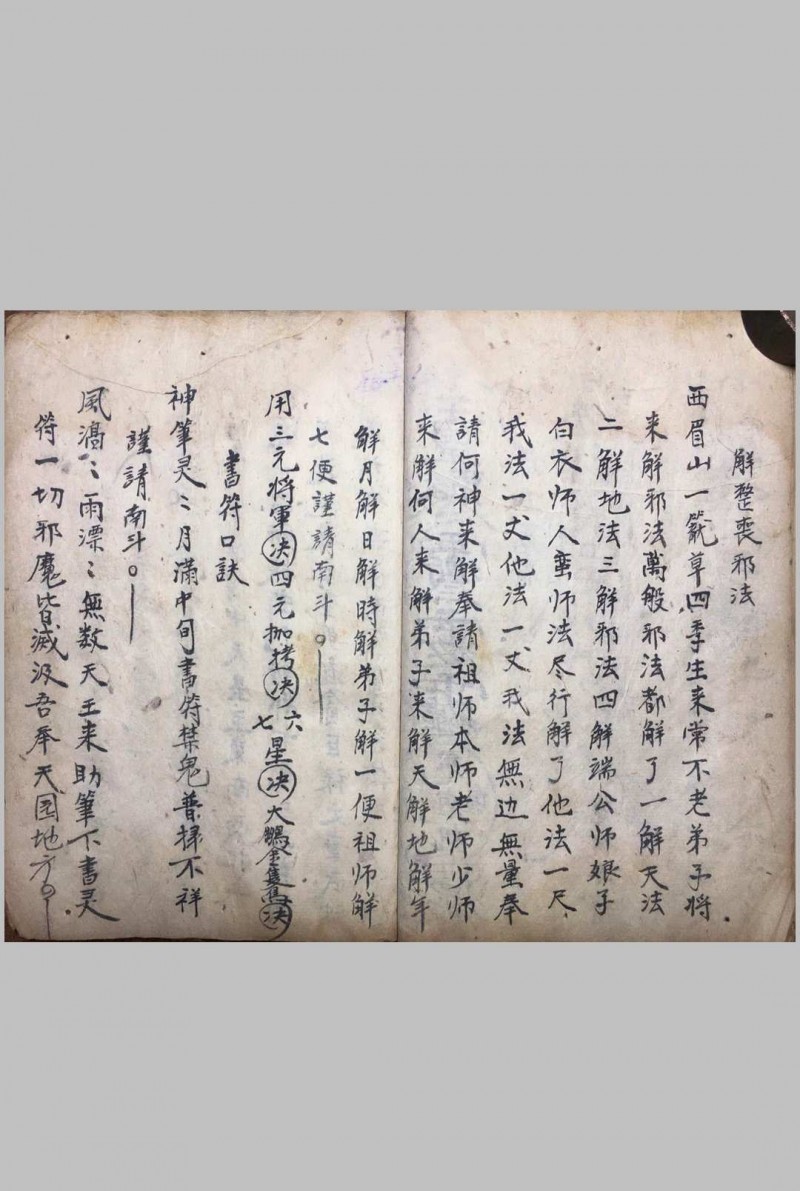 解整丧邪法
西眉山一籠草四季生来常不老弟子将
来解邪法萬般邪法都解了一解天法
二解地法三解邪法四解端公师娘子
白衣师人蛮师法尽行解了他法一尺
我法一丈他法一丈我法無边無量奉
請何神来解奉請祖师本师老师少师
来解何人来解弟子来解天解地解年
解月解日解時解弟子解一便祖师解
七便謹請南斗。
用三元将軍决四元枷拷决六七星决大鵬金隻鳥决
書符口訣
神筆灵〻月滿中旬書符禁鬼普掃不祥
謹請南斗。
風濄〻雨漂〻無数天王来助筆下書灵
符一切邪魔皆滅汲吾奉天园地方。